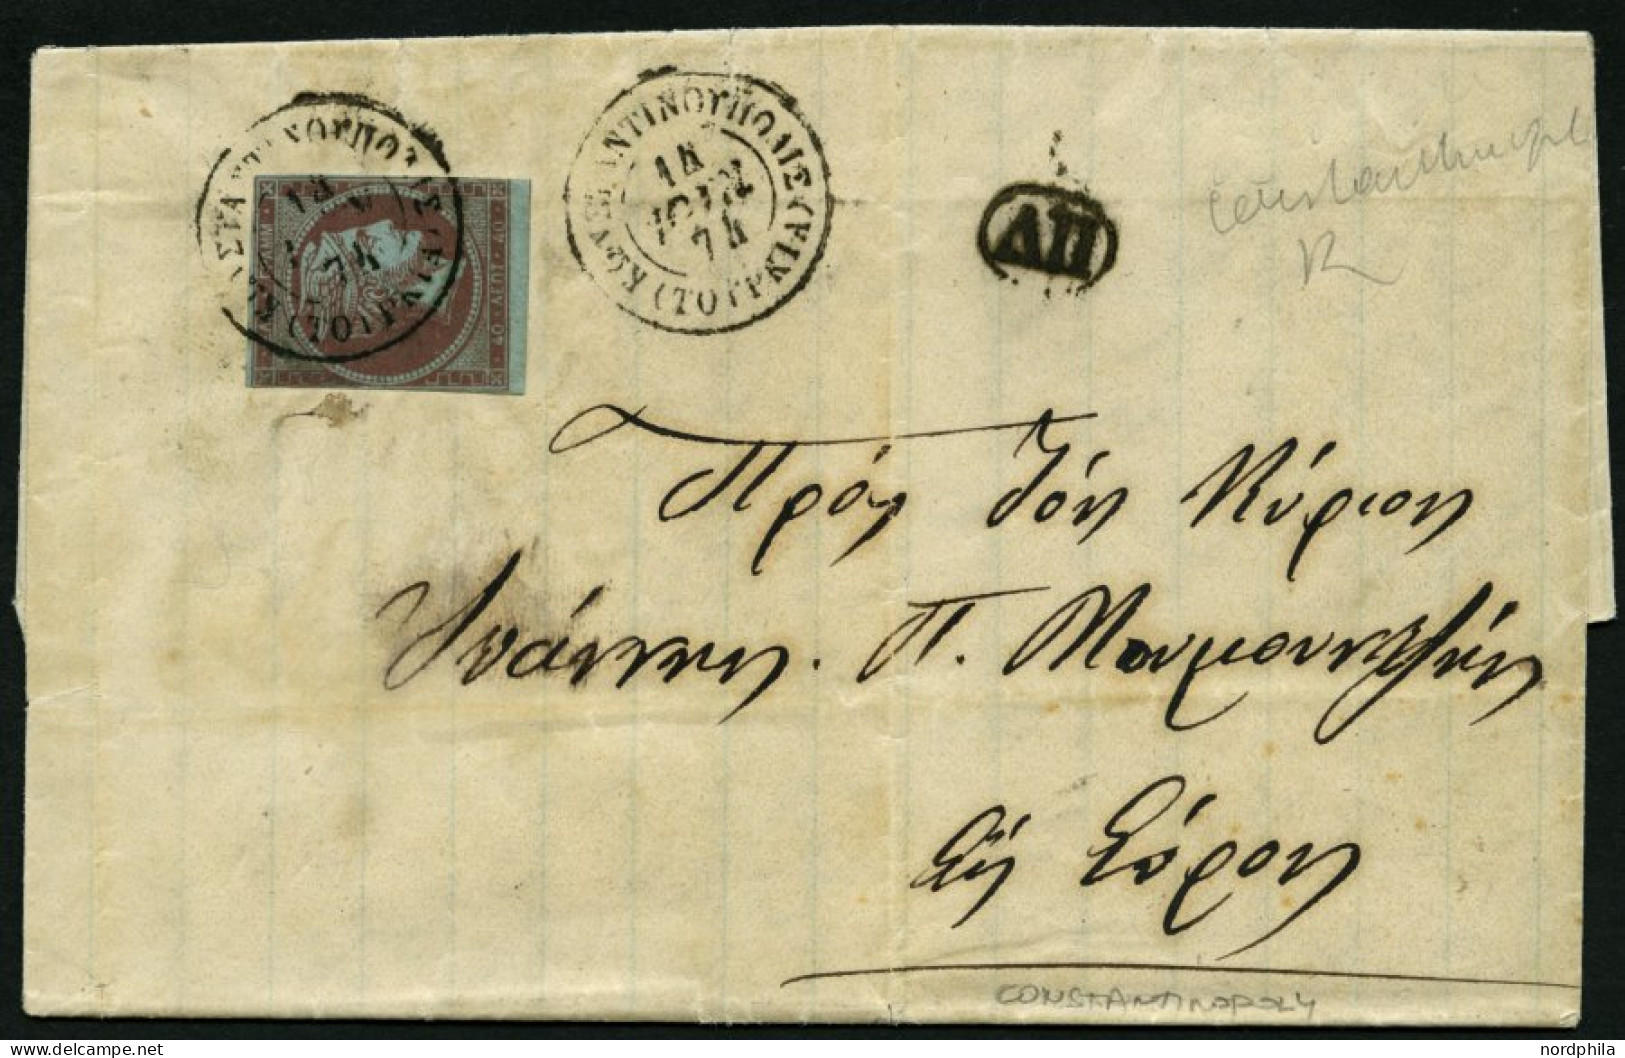 ΚΩΝΣΤΑΝΤΙΝΟΥΠΟΛΙΣ (ΤΟΥΡΚΙΑ)
14
74
ΚΩΝΣΤΑΝΤΙΝΟΥΠΟΛΙΣ (ΤΟΥΡΚΙΑ)
14
ΙΟΥΝ
74
40 ΛΕΠΤ. 40
ΔΠ
Constantinople
R
Πρός τόν Κύριον
Ἰωάννην. Π.
Εἰς Σύρον
CONSTANTINOPOLY
nordphila